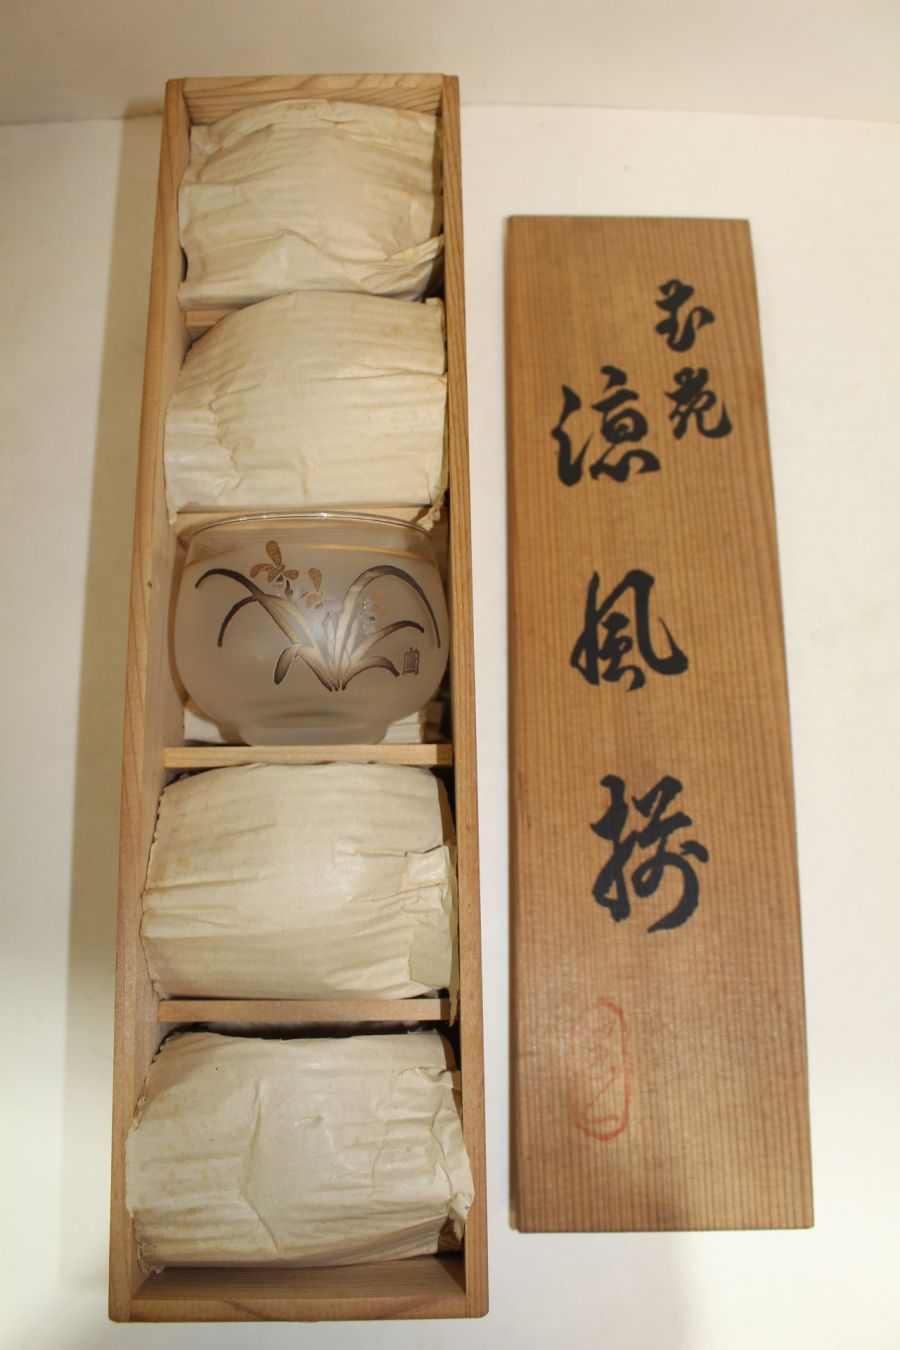 苑
涼風揃